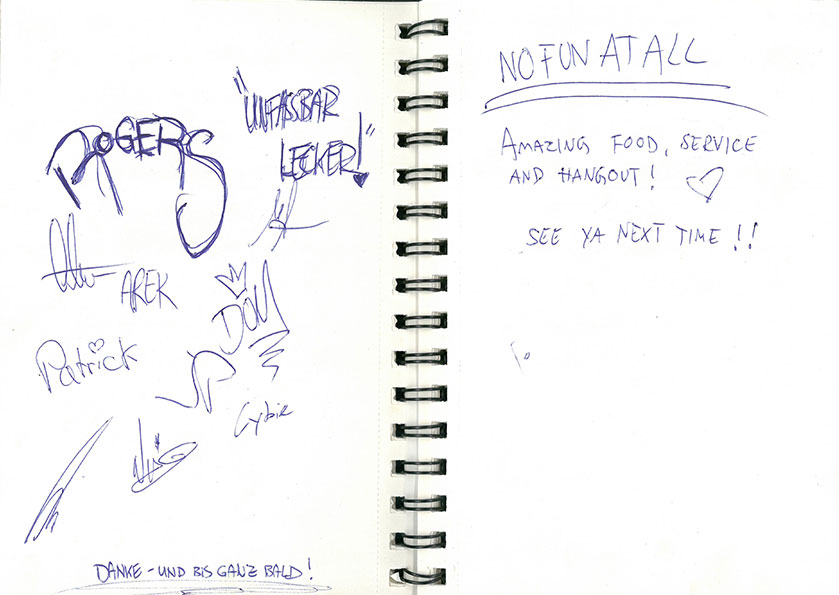 ROGERS
"UNFASSBAR
LECKER!"
AREK
DOM
Patrick
JP
DANKE - UND BIS GANZ BALD!
NO FUN AT ALL
AMAZING FOOD, SERVICE
AND HANGOUT!
SEE YA NEXT TIME!!